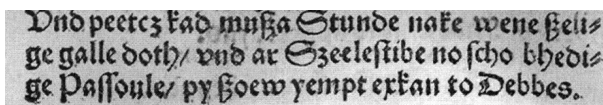 Vnd peetcz kad mußa Stunde nake wene ßeli⸗
ge galle doth/ vnd ar Szeelestibe no scho bhedi⸗
ge Passoule/ py ßoew yempt exkan to Debbes.